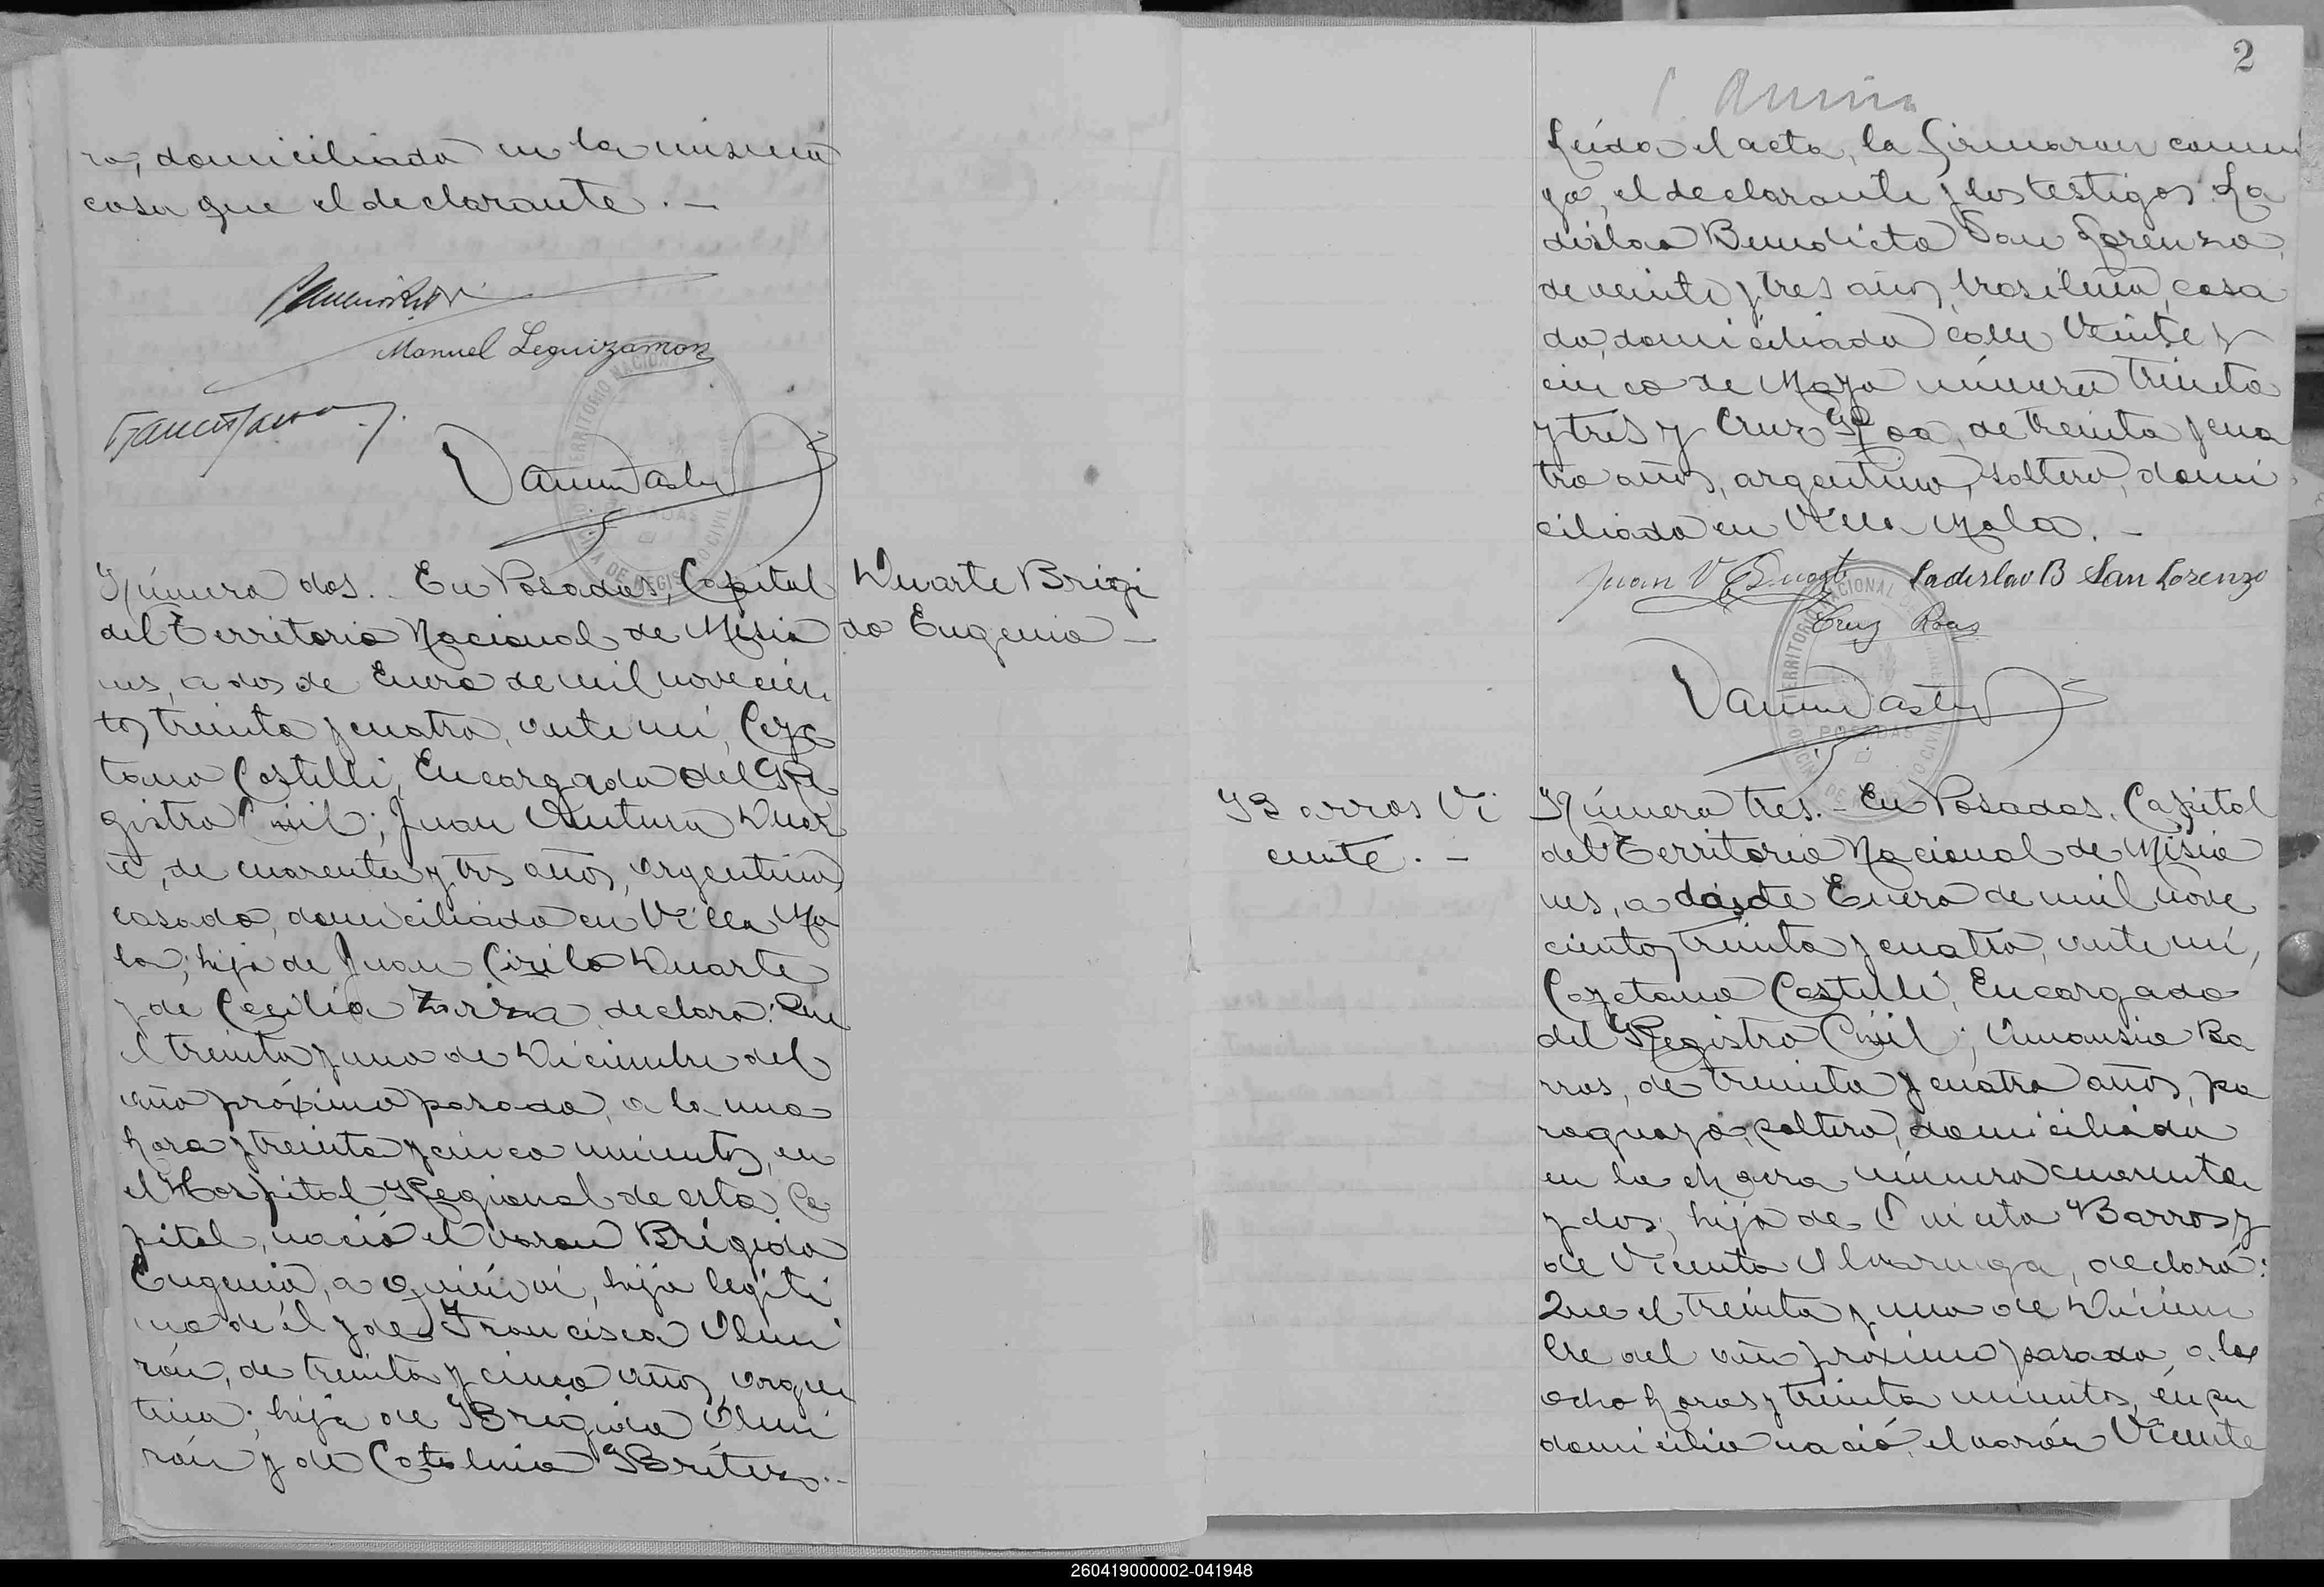 ra, domiciliada en la misma
casa que el declarante. —
Manuel Leguizamon
TERRITORIO NACIONAL
POSADAS
OFICINA DE REGISTRO CIVIL
Número dos. - En Posadas, Capital
del Territorio Nacional de Misio
nes, a dos de Enero de mil novecien
tos treinta y cuatro, ante mí, Caye
tano Castelli, Encargado del Re
gistro Civil; Juan Ventura Duar
te, de cuarenta y tres años, argentino,
casado, domiciliado en Villa Ma
la; hijo de Juan Cirilo Duarte
y de Cecilia declara: Que
el treinta y uno de Diciembre del
año próximo pasado, a la una
hora y treinta y cinco minutos, en
el Hospital Regional de esta Ca
pital, nació el varon Brígido
Eugenio, a quién ví, hijo legíti
mo de él y de Francisca Almi
rón, de treinta y cinco años, argen
tina; hija de Brígido Almi
rón y de Catalina Brítez. -
Duarte Brígi
do Eugenio —
2
Leída el acta, la firmaron conmi
go, el declarante y los testigos La
dislao Benedicto San Lorenzo,
de veinte y tres años, brasilero, casa
do, domiciliado calle Veinte y
cinco de Mayo número treinta
y tres y Cruz Roa, de treinta y cua
tro años, argentino, soltero, domi
ciliado en Villa Mala. —
Juan V Duarte Ladislao B San Lorenzo
Cruz Roas
TERRITORIO NACIONAL
POSADAS
OFICINA DE REGISTRO CIVIL
Barros Vi
cente. —
Número tres. - En Posadas, Capital
del Territorio Nacional de Misio
nes, a dos de Enero de mil nove
cientos treinta y cuatro, ante mí,
Cayetano Castelli, Encargado
del Registro Civil; Amansio Ba
rros, de treinta y cuatro años, pa
raguayo, soltero, domiciliado
en la chacra número cuarenta
y dos; hijo de Barros y
de Vicenta Alvarenga, declara:
Que el treinta y uno de Diciem
bre del año próximo pasado, a las
ocho horas y treinta minutos, en su
domicilio nació, el varón Vicente
260419000002-041948